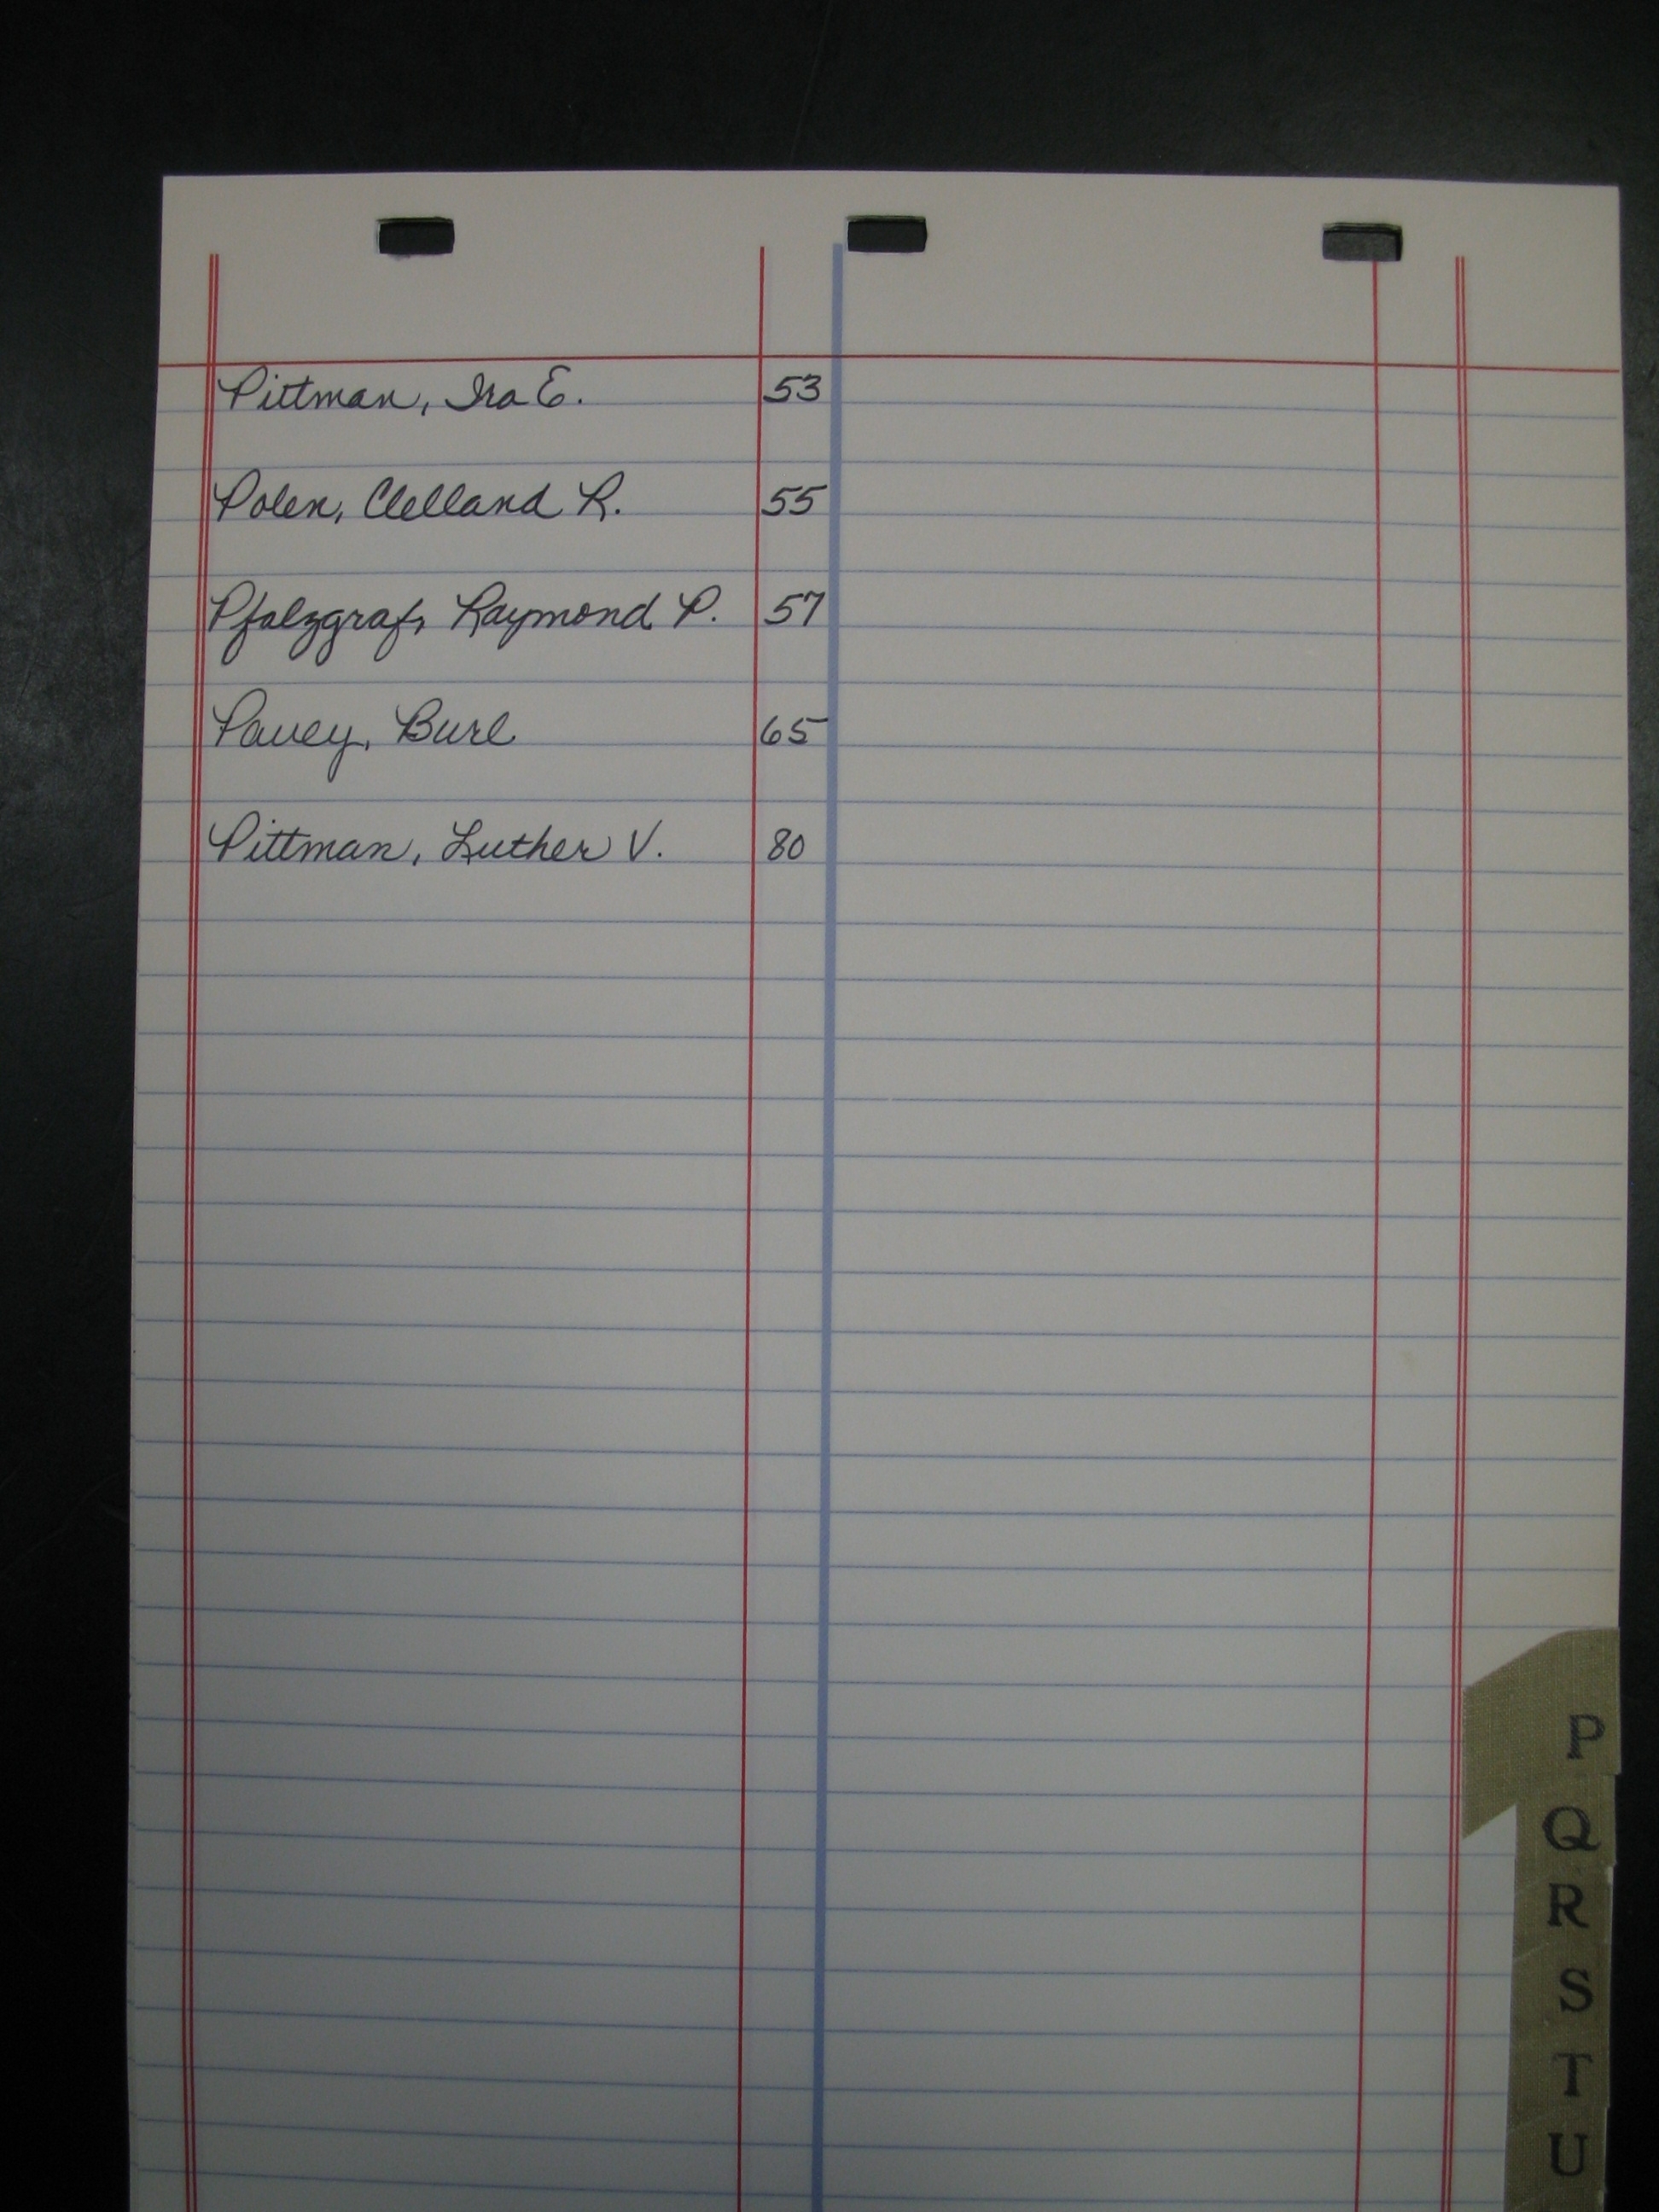 Pittman, Ira E. 53
Polen, Clelland R. 55
Pfalzgraf, Raymond P. 57
Pavey, Burl 65
Pittman, Luther V. 80
P
Q
R
S
T
U